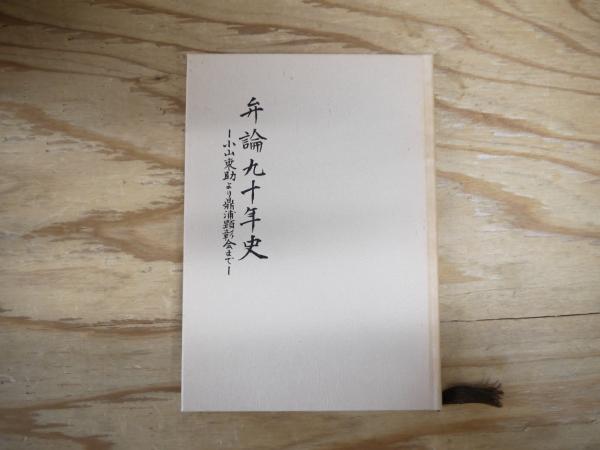 弁論九十年史
ー小山東助より鼎浦顕彰会までー